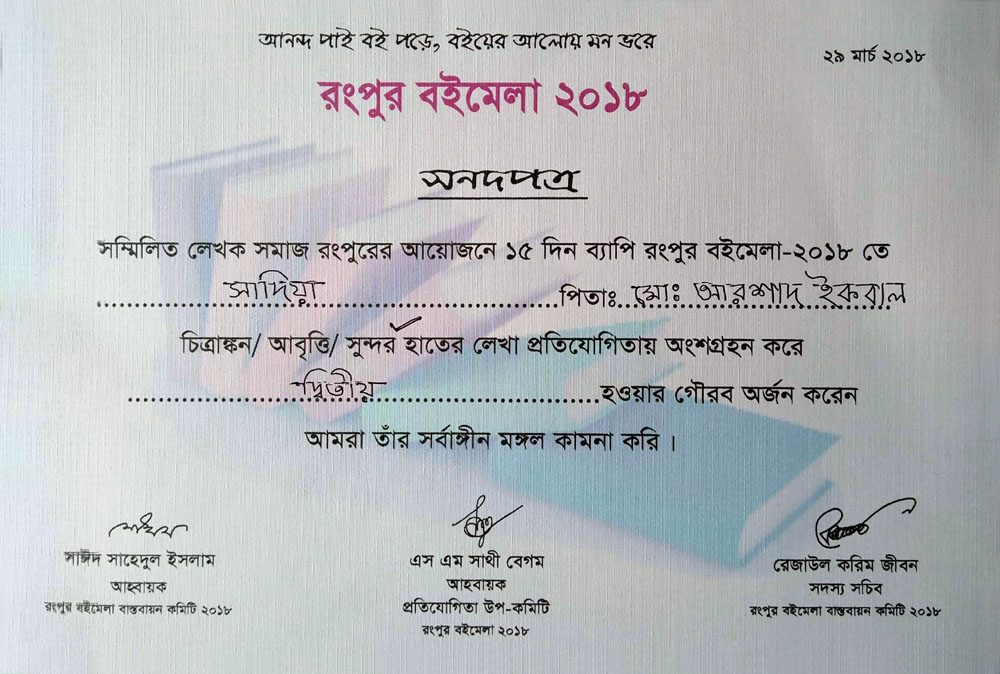 আনন্দ পাই বই পড়ে, বইয়ের আলোয় মন ভরে
২৯ মার্চ ২০১৮
রংপুর বইমেলা ২০১৮
সনদপত্র
সম্মিলিত লেখক সমাজ রংপুরের আয়োজনে ১৫ দিন ব্যাপি রংপুর বইমেলা-২০১৮ তে
সাদিয়া পিতাঃ মোঃ আরশাদ ইকবাল
চিত্রাঙ্কন/ আবৃত্তি/ সুন্দর হাতের লেখা প্রতিযোগিতায় অংশগ্রহন করে
দ্বিতীয় হওয়ার গৌরব অর্জন করেন
আমরা তাঁর সর্বাঙ্গীন মঙ্গল কামনা করি ।
সাঈদ সাহেদুল ইসলাম
আহবায়ক
রংপুর বইমেলা বাস্তবায়ন কমিটি ২০১৮
এস এম সাথী বেগম
আহবায়ক
প্রতিযোগিতা উপ-কমিটি
রংপুর বইমেলা ২০১৮
রেজাউল করিম জীবন
সদস্য সচিব
রংপুর বইমেলা বাস্তবায়ন কমিটি ২০১৮